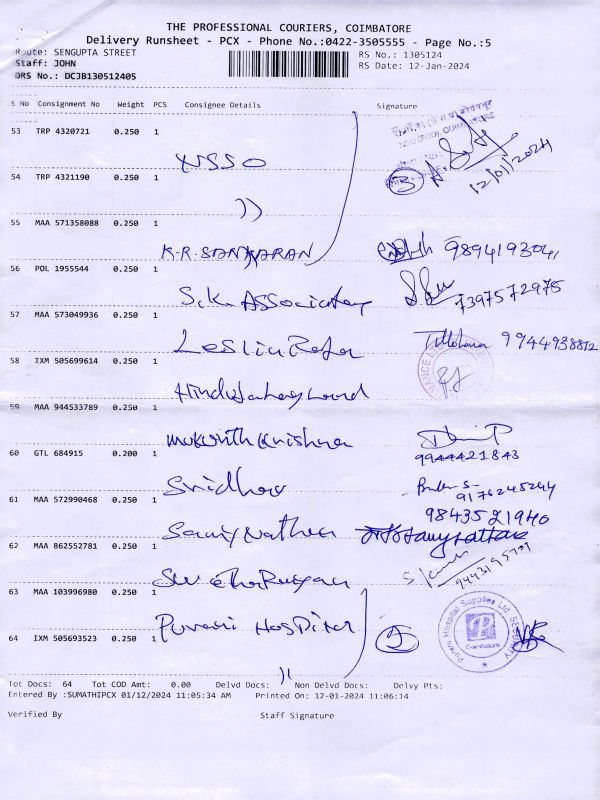 THE PROFESSIONAL COURIERS, COIMBATORE
Delivery Runsheet - PCX - Phone No.:0422-3505555 - Page No.:5
Route: SENGUPTA STREET RS No.: 1305124
Staff: JOHN RS Date: 12-Jan-2024
DRS No.: DCJB130512405
S No Consignment No Weight PCS Consignee Details Signature
53 TRP 4320721 0.250 1
NSSO
12/01/2024
54 TRP 4321190 0.250 1
))
55 MAA 571358088 0.250 1
K.R. SANKARAN 9894193041
56 POL 1955544 0.250 1
S.K. Associates 7397572975
57 MAA 573049936 0.250 1
9944938812
58 IXM 505699614 0.250 1
59 MAA 944533789 0.250 1
Mukunth Krishna
9944421843
60 GTL 684915 0.200 1
Sridhar
9176245244
61 MAA 572990468 0.250 1
9843521940
Samynathan
62 MAA 862552781 0.250 1
63 MAA 103996980 0.250 1
Purani Hospital
64 IXM 505693523 0.250 1
Purani Hospital Supplies Ltd
Coimbatore
))
Tot Docs: 64 Tot COD Amt: 0.00 Delvd Docs: Non Delvd Docs: Delvy Pts:
Entered By :SUMATHIPCX 01/12/2024 11:05:34 AM Printed On: 12-01-2024 11:06:14
Verified By Staff Signature